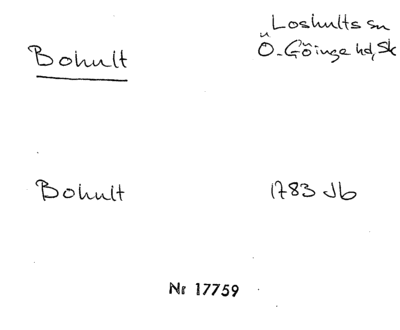 Bohult
Loshults sn
Ö. Göinge hd, Sk
Bohult
1783 Jb
Nr 17759